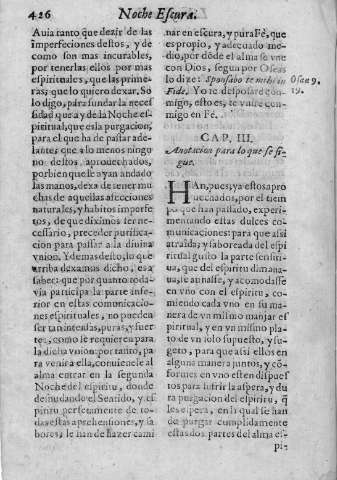 426 Noche Escura.
Auia tanto que dezir de las
imperfeciones destos, y de
como son mas incurables,
por tenerlas ellos por mas
espirituales, que las prime-
ras; que lo quiero dexar. So
lo digo, para fundar la neces
sidad que ay de la Noche es-
piritual, que es la purgacion,
para el que ha de passar ade-
lante; que a lo menos ningu
no destos aprouechados,
por bien que le ayan andado
las manos, dexa de tener mu
chas de aquellas afecciones
naturales, y habitos imperfe
tos, de que diximos ser ne-
cessario, preceder purifica-
cion para passar a la diuina
vnion. Y demas desto, lo que
arriba dexamos dicho, es a
saber; que por quanto toda-
via participa la parte infe-
rior en estas comunicacio-
nes espirituales, no pueden
ser tan intensas, puras, y fuer
tes, como se requieren para
la dicha vnion: por tanto, pa
ra venir a ella, conuienele al
alma entrar en la segunda
Noche del espiritu, donde
desnudando el Sentido, y es
piritu perfetamente de to-
das estas aprehensiones, y sa
bores, le han de hazer cami
nar en escura, y pura Fè, que
es propio, y adecuado me-
dio, por dõde el alma se vne
con Dios, segun por Oseas
lo dize: Sponsabo te mihi in
Fide. Yo te desposarè con-
migo, esto es, te vnirè con-
migo en Fè.
Osee 9.
19.
CAP. III.
Anotacion para lo que se si-
gue.
HAn, pues, ya estos apro
uechados, por el tiem
po que han passado, experi-
mentando estas dulces co-
municaciones: para que assi
atraida, y saboreada del espi
ritual gusto la parte sensiti-
ua, que del espiritu dimana-
ua, se aunasse, y acomodasse
en vno con el espiritu, co-
miendo cada vno en su ma-
nera de vn mismo manjar es
piritual, y en vn mismo pla-
to de vn solo supuesto, y su-
geto, para que assi ellos en
alguna manera juntos, y cõ-
formes en vno esten dispues
tos para sufrir la aspera, y du
ra purgacion del espiritu, q̃
les espera, en la qual se han
de purgar cumplidamente
estas dos partes del alma es-
pi-